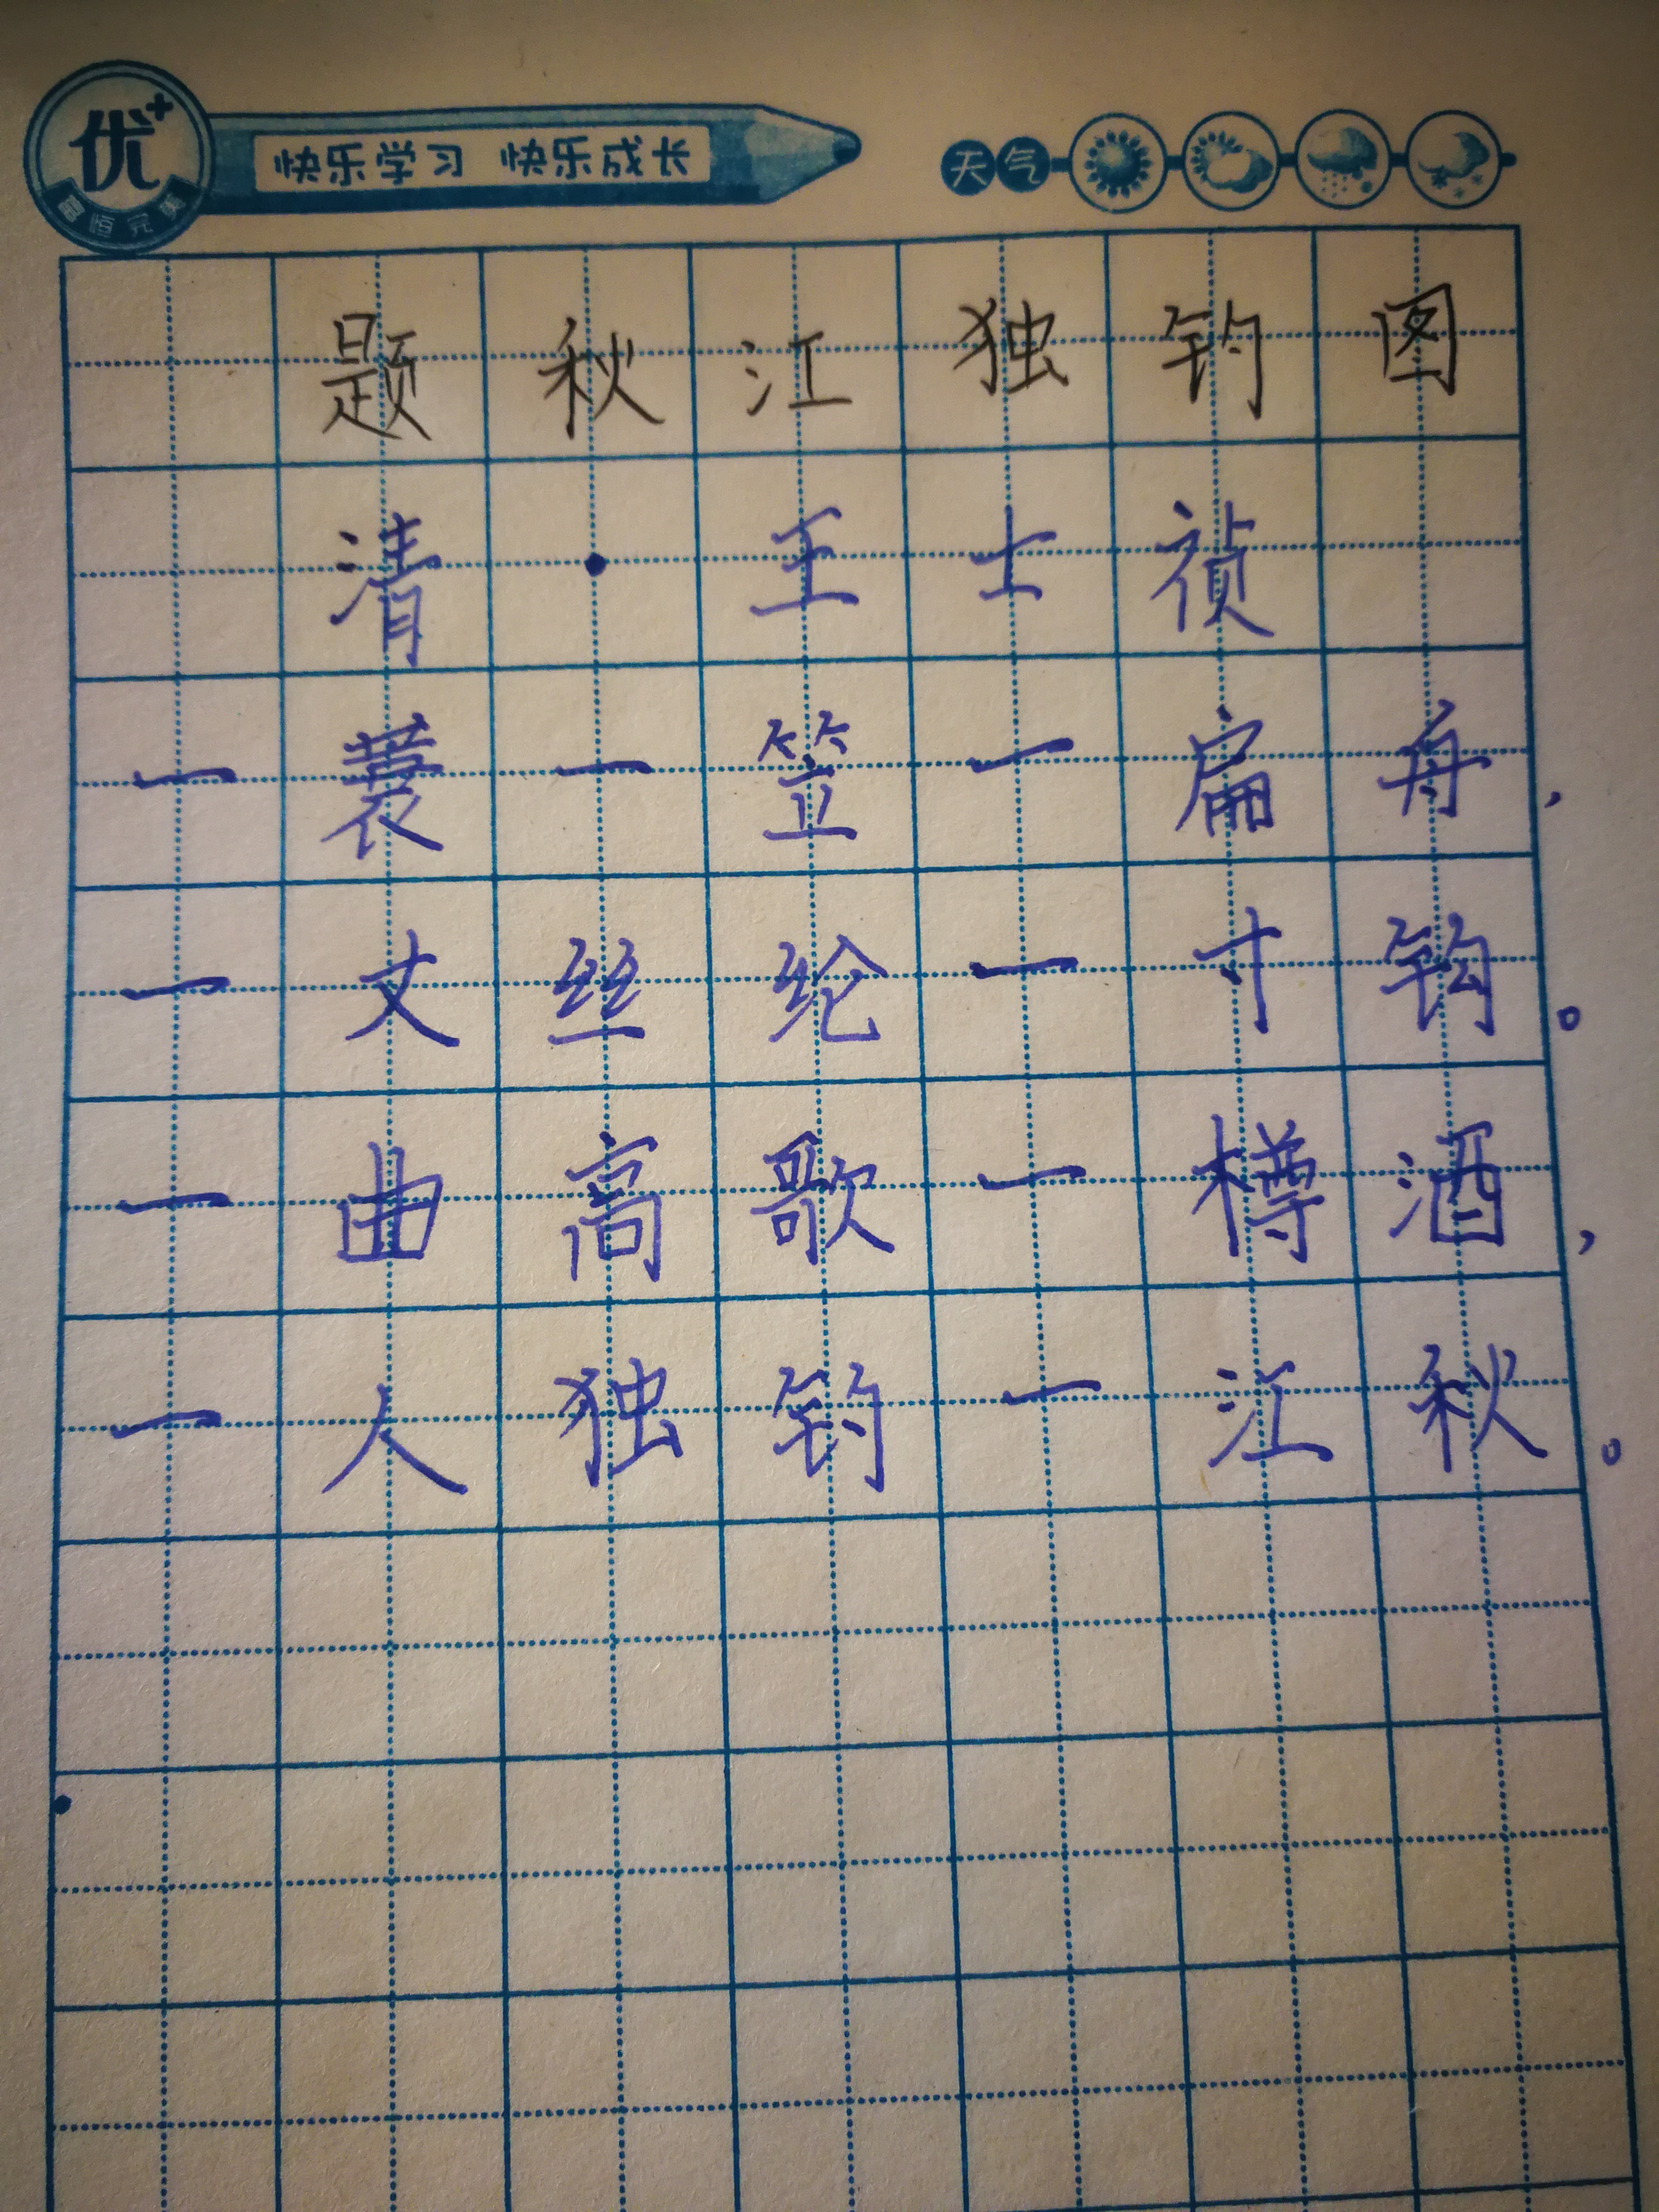 优+ 快乐学习 快乐成长 天气
题秋江独钓图
清·王士祯
一蓑一笠一扁舟，
一丈丝纶一寸钩。
一曲高歌一樽酒，
一人独钓一江秋。